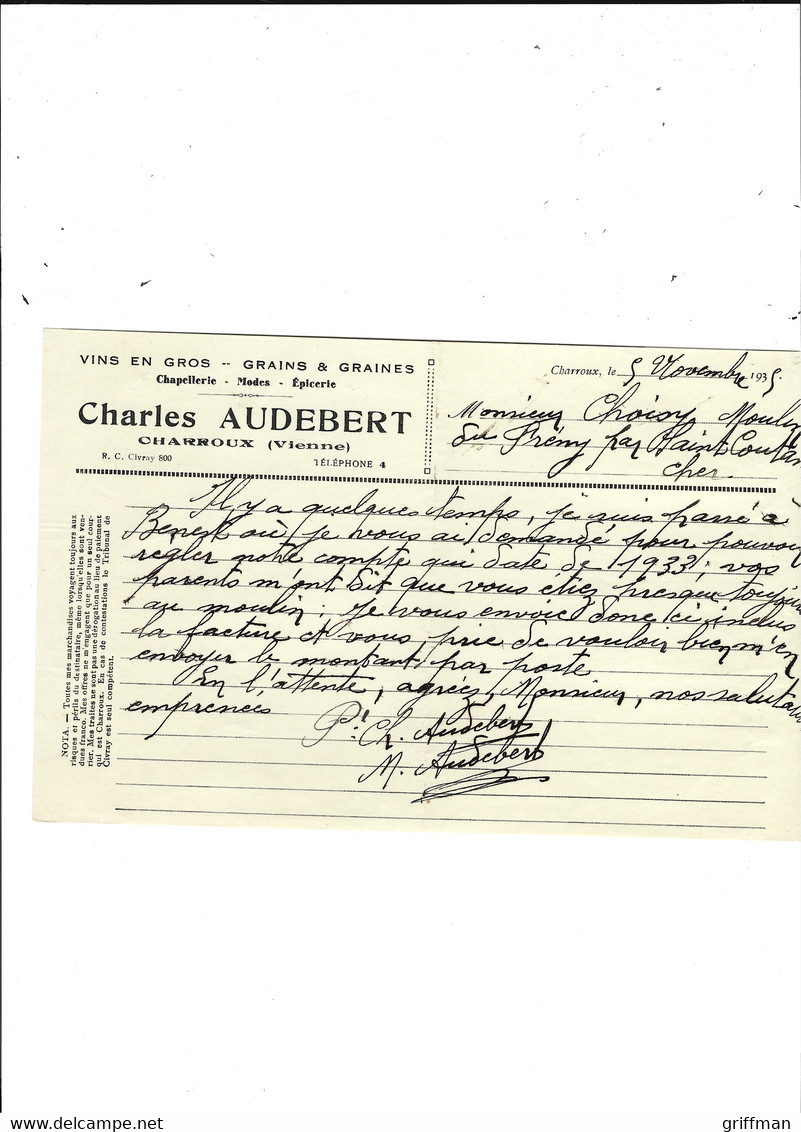 VINS EN GROS -- GRAINS & GRAINES
Chapellerie - Modes - Épicerie
Charles AUDEBERT
CHARROUX (Vienne)
R. C. Civray 800
TÉLÉPHONE 4
Charroux, le 5 Novembre 1935.
Monsieur Choisy Moulin
du Prény par Saint Coutan
Cher.
Il y a quelques temps, je suis passé à
Benest où je vous ai demandé pour pouvoir
regler notre compte qui date de 1933: vos
parents m'ont dit que vous étiez presque toujours
au moulin; je vous envoie donc ci-inclus
la facture et vous prie de vouloir bien m'en
envoyer le montant par poste
En l'attente, agréez, Monsieur, nos salutations
emprences
P.r Ch. Audebert
M. Audebert
NOTA. — Toutes mes marchandises voyagent toujours aux
risques et périls du destinataire, même lorsqu'elles sont ven-
dues franco. Mes offres ne m'engagent que pour un seul cour-
rier. Mes traites ne sont pas une dérogation au lieu de paiement
qui est Charroux. En cas de contestations le Tribunal de
Civray est seul compétent.
delcampe.net
griffman